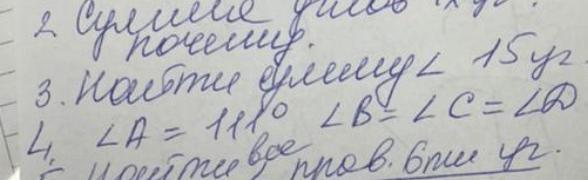 2. Сумма углов
почему.
3. Найти сумму ∠ 15 уг.
4. ∠A = 111° ∠B = ∠C = ∠D
Найти все прав. 6ти уг.